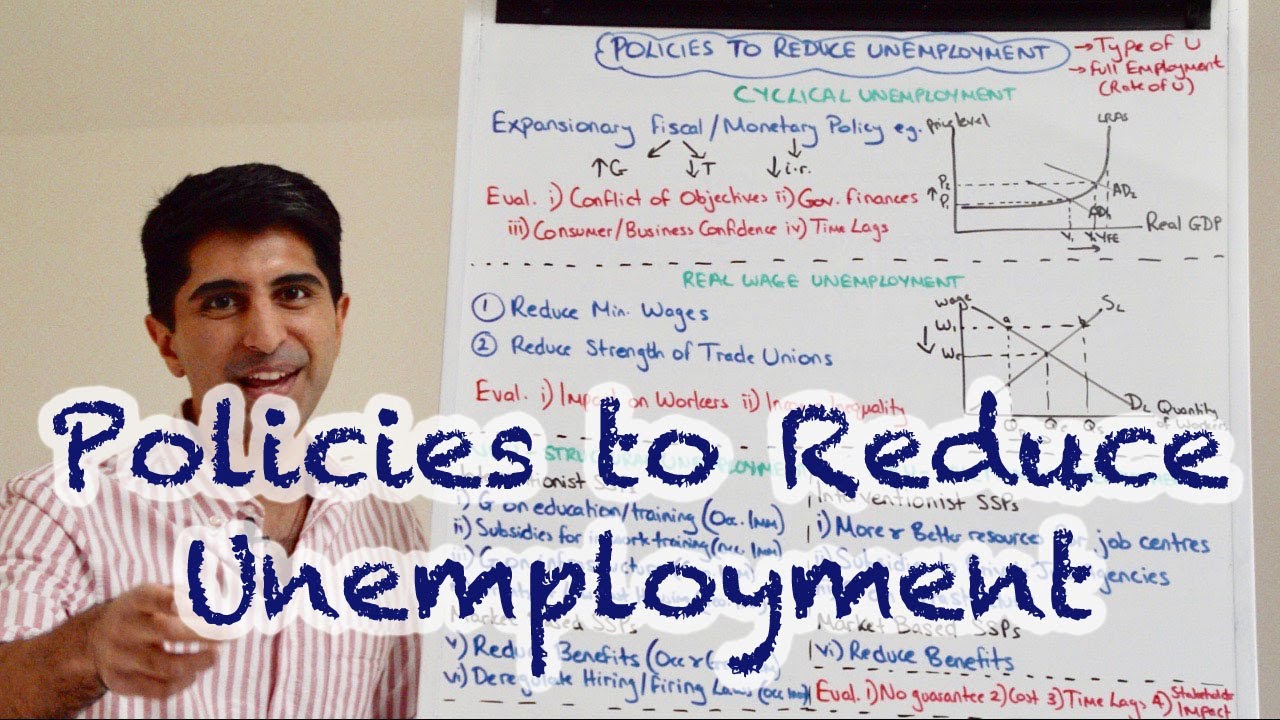 POLICIES TO REDUCE UNEMPLOYMENT
→ Type of U
→ Full Employment
(Rate of U)
CYCLICAL UNEMPLOYMENT
Expansionary Fiscal / Monetary Policy eg.
↑G ↓T ↓i.r.
Eval. i) Conflict of Objectives ii) Gov. finances
iii) Consumer/Business Confidence iv) Time Lags
Price level
LRAS
P2
P1
AD2
AD1
Real GDP
Y1
YFE
REAL WAGE UNEMPLOYMENT
① Reduce Min. Wages
② Reduce Strength of Trade Unions
Eval. i) on Workers ii)
Wage
SL
a
b
W1
We
DL
Quantity
of Workers
Policies to Reduce
Unemployment
SSPs
i) G on education/training (Occ. Imm)
ii) Subsidies for training
v) Reduce Benefits (Occ
vi) Deregulate Hiring/Firing Laws
Interventionist SSPs
i) More & Better resources job centres
Market Based SSPs
vi) Reduce Benefits
Eval. 1) No guarantee 2) Cost 3) Time Lags 4) Stakeholder
Impact